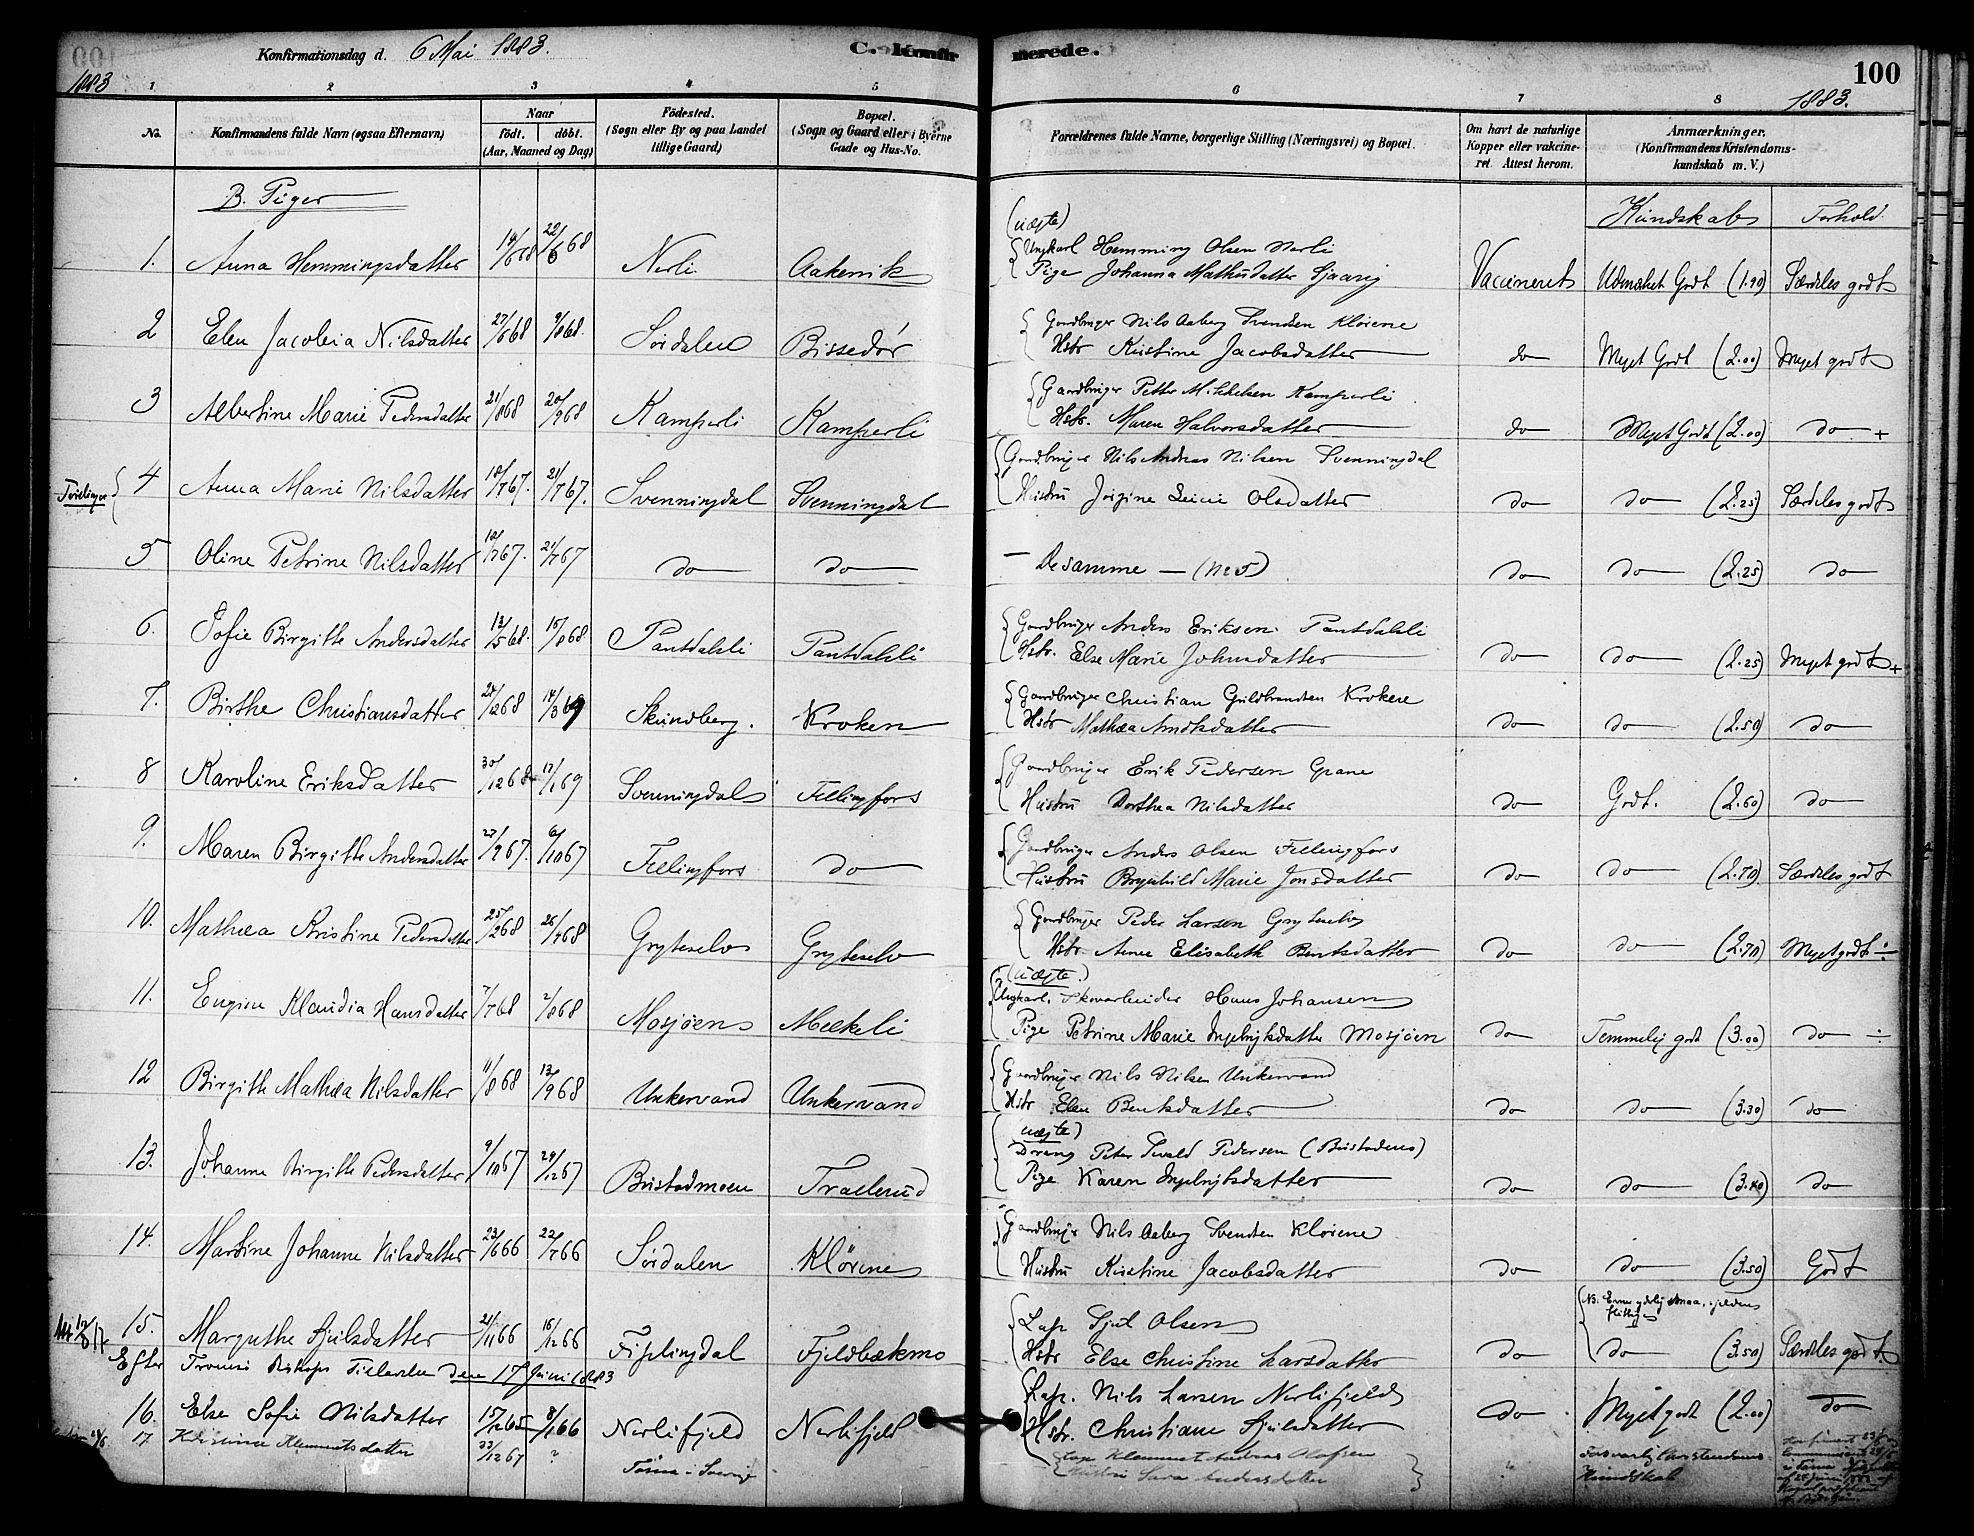 Konfirmationsdag d. 6 Mai 1883.
C. Konfirmerede.
100
1883
1883.
1 2 3 4 5 6 7 8
No.
Konfirmandens fulde Navn (ogsaa Efternavn)
Naar
født. døbt.
(Aar, Maaned og Dag)
Födested.
(Sogn eller By og paa Landet
tillige Gaard)
Bopæl.
(Sogn og Gaard eller i Byerne
Gade og Hus-No.
Forældrenes fulde Navne, borgerlige Stilling (Næringsvei) og Bopæl.
Om havt de naturlige
Kopper eller vakcine-
ret. Attest herom.
Anmærkninger.
(Konfirmandens Kristendoms-
kundskab m. V.)
B. Piger
Kundskab Forhold.
(uægte)
1. Anna Hemmingsdatter 22/6 68 Nerli Aakervik Ungkarl Hemming Olsen Nerli
Pige Johanna Vaccineret Udmærket Godt (1.90) Særdeles godt
2 Elen Jacobia Nilsdatter 27/6 68 9/8 68. Sördalen Bissedör Gaardbruger Nils Aaberg Svendsen Klörene
Hstr Kristine Jacobsdatter do Meget Godt (2.00) Meget godt
3 Albertine Marie Pedersdatter 21/8 68 20/9 68 Kamperli Kamperli Gaardbruger Petter Mikkelsen Kamperli
Hstr. Maren Halvorsdatter do Meget Godt (2.00) do +
Tvillinger
4 Anna Marie Nilsdatter 10/7 67. 21/7 67. Svenningdal Svenningdal Gaardbruger Nils Andreas Nilsen Svenningdal
Hustru Jörgine Olsdatter do do (2.25) Særdeles godt
5 Oline Petrine Nilsdatter 10/7 67. 21/7 67 do do — De samme — do do (2.25) do
6. Sofie Birgitte Andersdatter 13/5 68. 15/8 68 Pantdalsli Pantdalsli Gaardbruger Anders Eriksen Pantdalsli
Hstr. Else Marie Johnsdatter do do (2.25) Meget godt +
7. Birthe Christiansdatter 14/3 69 Skindberg. Kroken Gaardbruger Christian Guldbrandsen Krokene
Hstr Mathea do do (2.50) do
8 Karoline Eriksdatter 30/12 68 17/1 69 Svenningdal Fellingfors Gaardbruger Erik Pedersen Grane
Hustru Dorthea Nilsdatter do Godt. (2.60) do
9. Maren Birgitte Andersdatter 27/9 67. 6/10 67 Fellingfors do Gaardbruger Anders Olsen Fellingfors
Hustru Brynhild Marie Jonsdatter do do (2.70). Særdeles godt
10. Mathea Kristine Pedersdatter 25/2 68 26/4 68 Gryteselv Gryteselv Gaardbruger Peder Larsen Gryteselv
Hstr. Anne Elisabeth Bentsdatter do do (2.70) Meget godt ÷
(uægte)
11. Klaudia Hansdatter 7/7 68 2/8 68 Mosjöen Mækeli Ungkarl, Skovarbeider Hans Johansen
Pige Petrine Marie Ingebrigtsdatter Mosjöen do Temmelig godt (3.00) do ÷
12 Birgitte Mathea Nilsdatter 11/8 68 13/9 68 Unkervand Unkervand Gaardbruger Nils Nilsen Unkervand
Hstr Elen Bentsdatter do do (3.30) do
uægte)
13. Johanne Birgitte Pedersdatter 9/10 67 29/12 67 Bustadmoen Trallerud Dreng Peter Sivald Pedersen (Bustadmo)
Pige Karen Ingebrigtsdatter do do (3.40) do
14. Martine Johanne Nilsdatter 23/6 66 22/7 66 Sördalen Klörene Gaardbruger Nils Aaberg Svendsen Klörene
Hustru Kristine Jacobsdatter do do (3.50) Godt
15. Margrethe Sjulsdatter 21/11 66 16/12 66 Fiplingdal Fjeldbækmo Lap Sjul Olsen
Hstr Else Christine Larsdatter do do (3.50) Særdeles godt
Efter Tromsö Biskops Tilladelse den 17 Juni 1883
16. Else Sofie Nilsdatter 15/12 65 8/1 66 Nerlifjeld Nerlifjeld Lap. Nils Larsen Nerlifjeld
Hstr. Christiane Sjulsdatter do Meget godt (2.00) do
17. Kristina Klementsdatter 23/12 67 ? Tärna i Sverige Lap Klemmet Andreas Olofsen
Hustru Sara Andersdatter Forsvarlig Christendoms
Kundskab